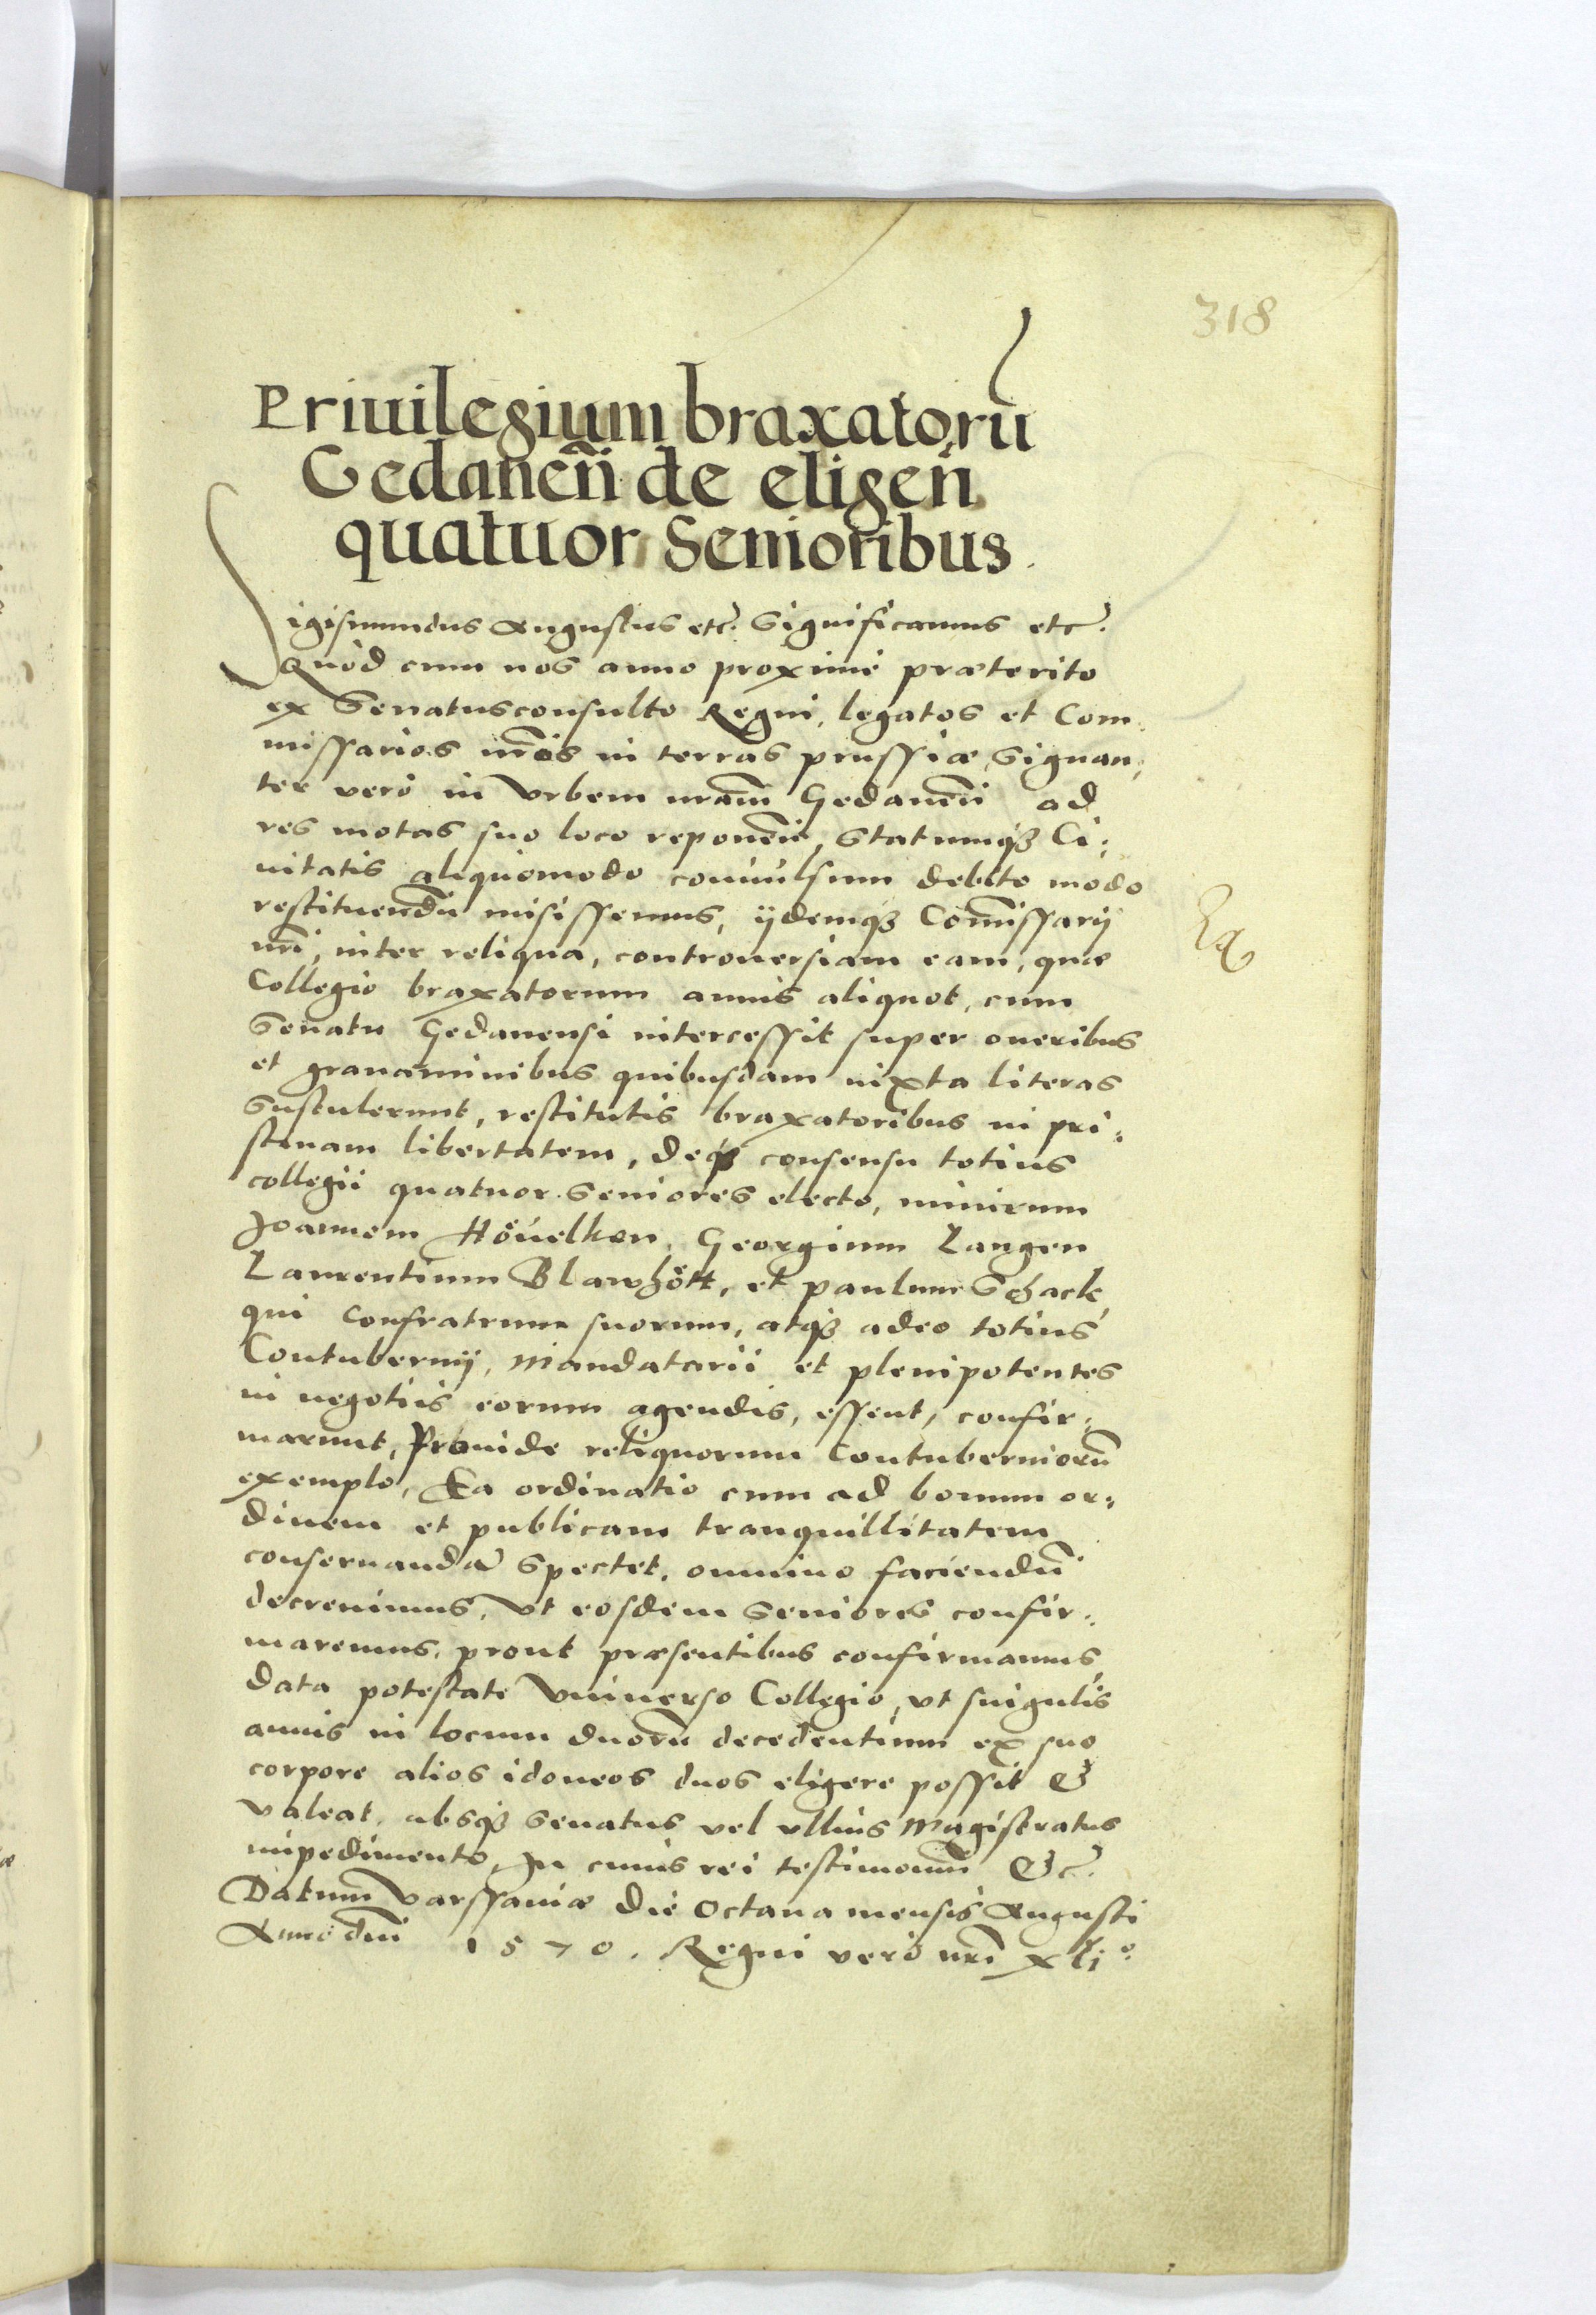 318
Priuilegium braxatorū
Gedaneñ de eligeñ
quatuor Senioribus.
Sigismundus Augustus etc. Significamus etc.
Quòd cum nos anno proximè præterito
ex Senatusconsulto Regni, legatos et Com
missarios nr̃os in terras prussiæ, signan,
ter verò in Vrbem nr̃am Gedaneñ ad
res motas suo loco reponeñ, Statumqꝫ Ci:
uitatis aliquomodo conuulsum debito modo
restituendū misissemus, ijdemqꝫ Com̃issarij
nr̃i, inter reliqua, controuersiam eam, quæ
Collegio braxatorum annis aliquot, cum
Senatu Gedanensi intercessit super oneribus
et grauaminibus quibusdam iuxta literas
sustulerunt, restitutis braxatoribus in pri:
stinam libertatem, deqꝫ consensu totius
collegii quatuor Seniores electo, nimirum
Joannem Höuelken, Georgium Langen
Laurentium Blawhött, et paulum Schack
qui Confratrum suorum, atqꝫ adeo totius
Contubernij, Mandatarii et plenipotentes
in negotiis eorum agendis, essent, confir:
marunt, Prouide reliquorum Contuberniorū
exemplo, Ea ordinatio cum ad bonum or:
dinem et publicam tranquillitatem
conseruandā spectet, omnino faciendū
decreuimus, Vt eosdem Seniores confir:
maremus, prout præsentibus confirmamus,
data potestate Vniuerso Collegio, vt singulis
annis in locum duorū decedentium ex suo
corpore alios idoneos duos eligere possit &
valeat, absqꝫ Senatus vel vllius Magistratus
impedimento, In cuius rei testimoniū &c.
Datum Varssauiæ die Octaua mensis Augusti
Anno dni 1570. Regni verò nr̃i xli°